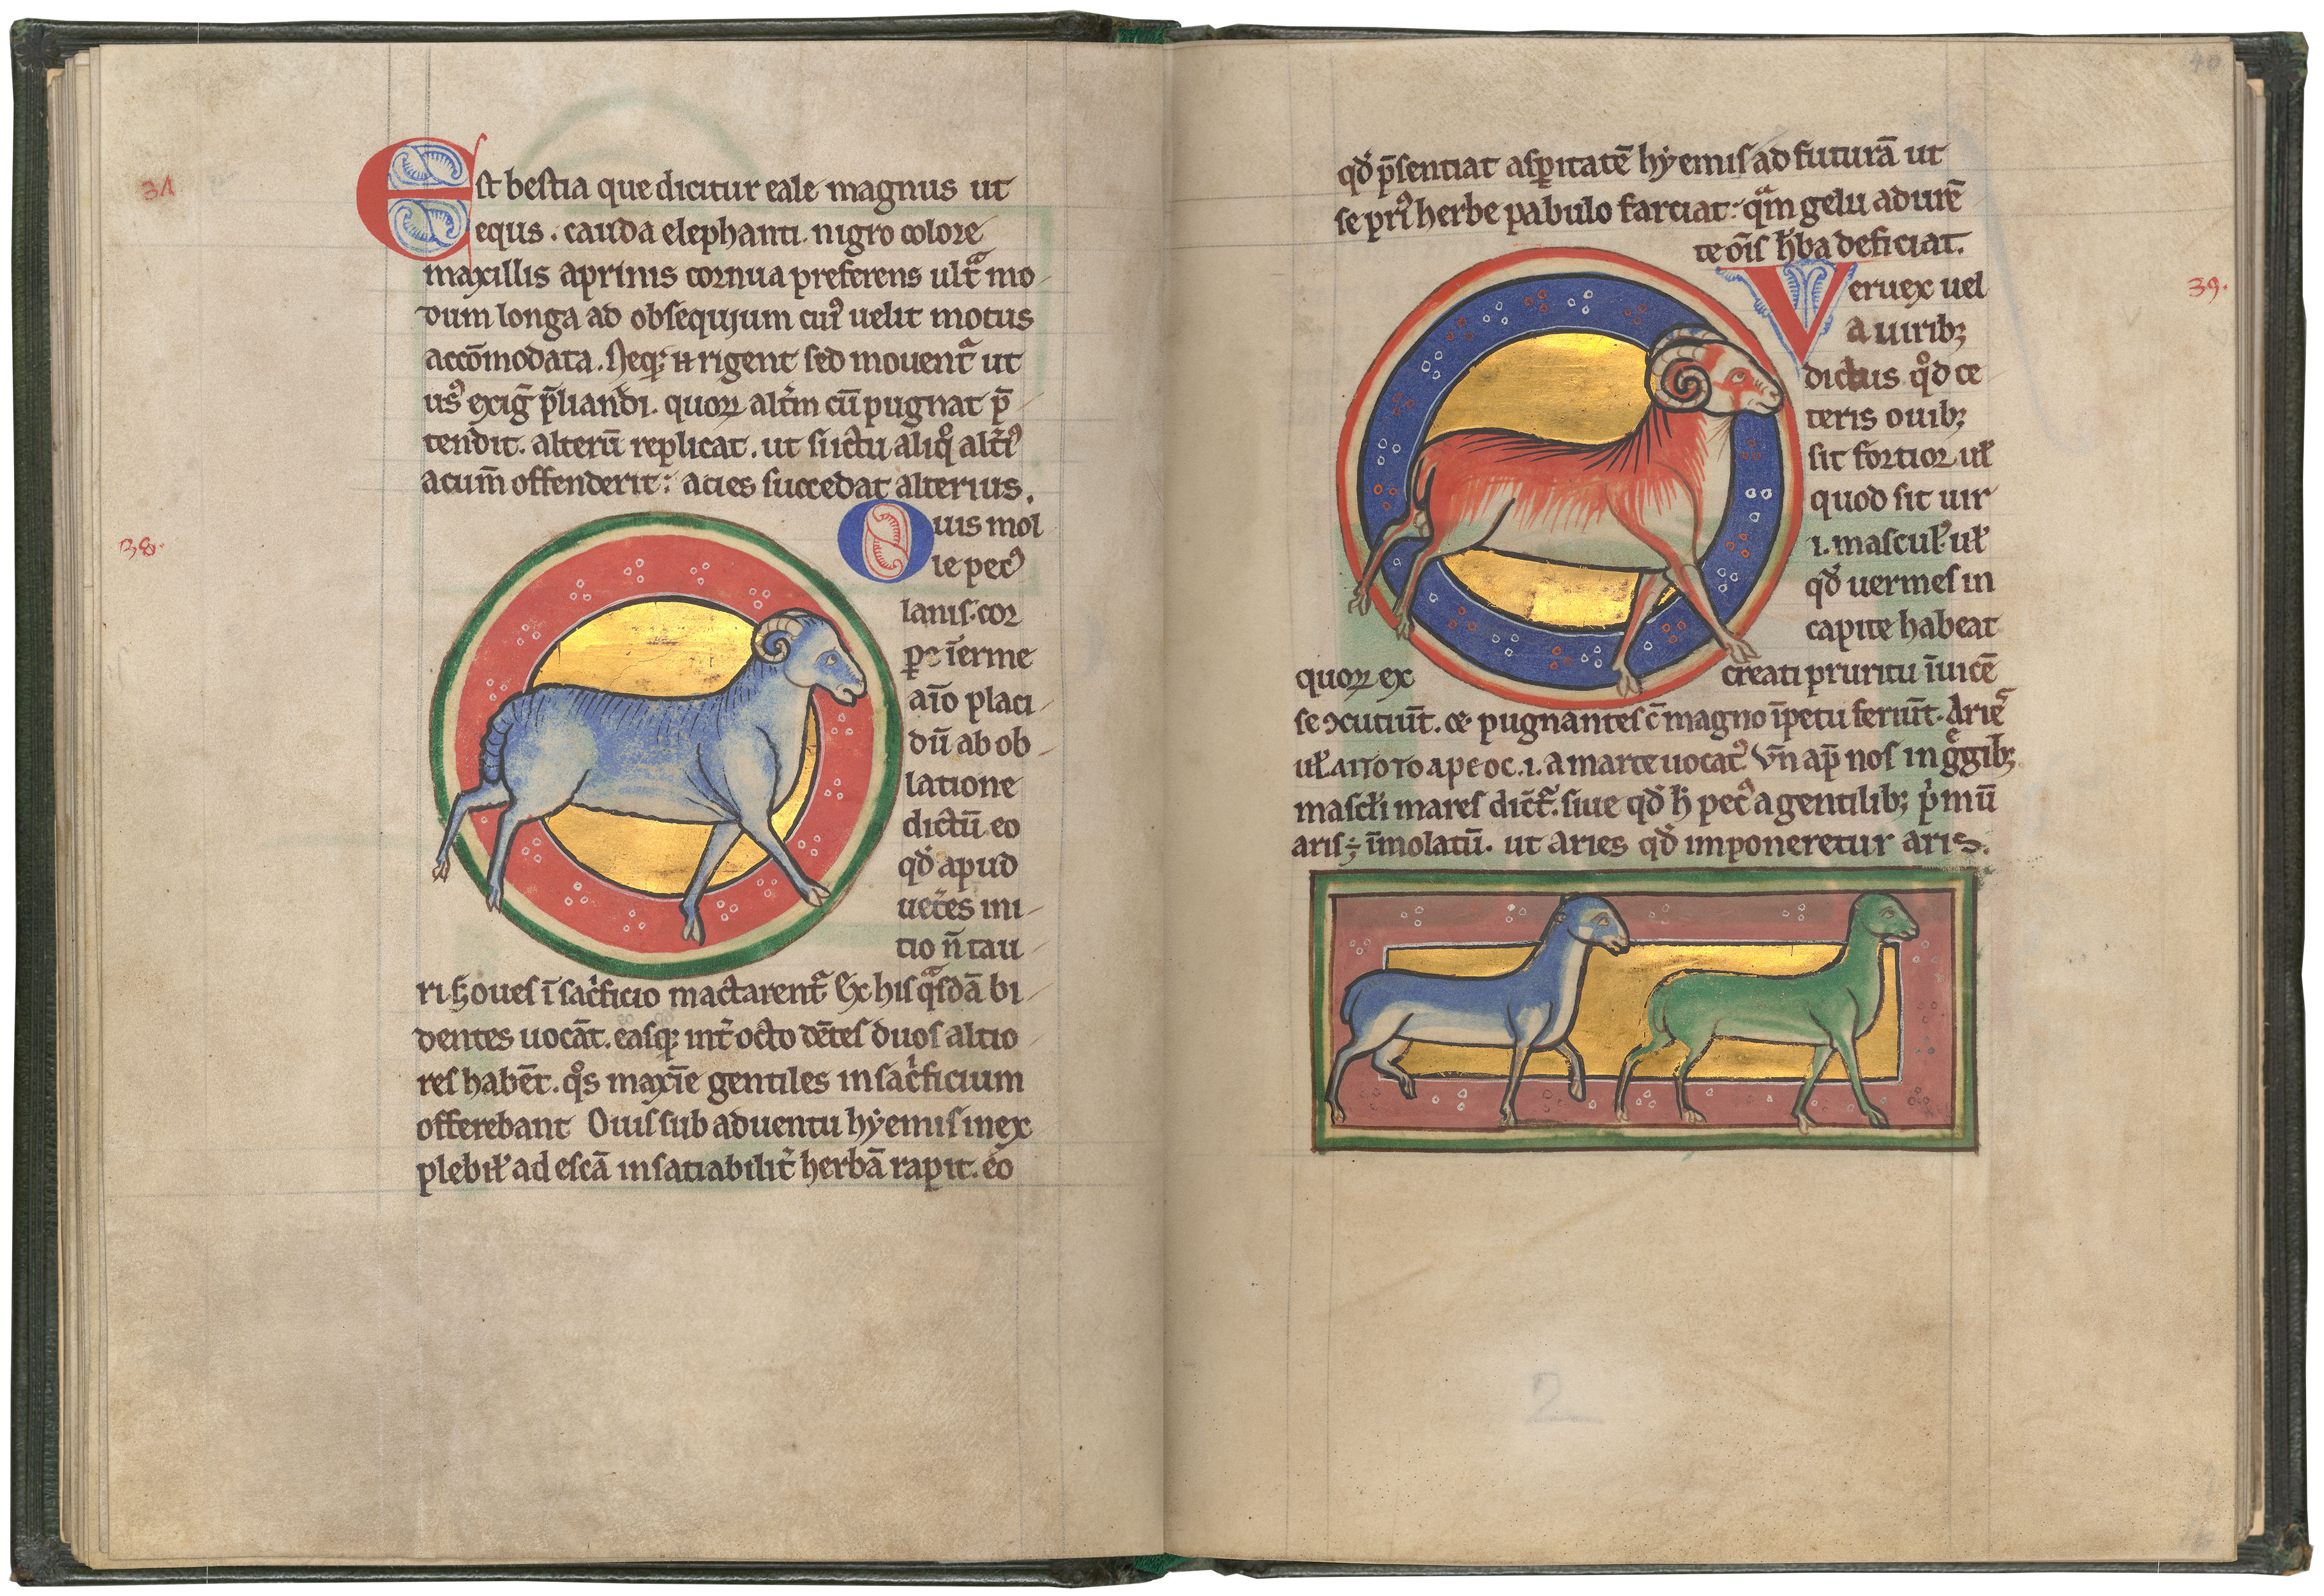 31
Est bestia que dicitur eale magnus ut
equs. cauda elephanti. nigro colore
maxillis aprinis cornua preferens ult̃ mo
dum longa ad obsequium cui᾽ uelit motus
accōmodata. Neq; n̄ rigent sed mouent̃ ut
us᾽ exiḡ p̄liandi. quoꝝ alt̃m cū pugnat p̄
tendit. alterū replicat. ut si ictu aliq̊ alt̃i᾽
acum̄ offenderit: acies succedat alterius.
38.
Ouis mol
le pec᾽
lanis. cor
pe īerme
aīo placi
dū ab ob
latione
dictū eo
qđ apud
uet̃es ini
tio n̄ tau
ri ſꝫ oues ī sac̃ficio mactarent̃ Ex his q̃sdā bi
dentes uocāt. easq; int̃ octo dētes duos altio
res habēt. q̊s maxīe gentiles in sac̃ficium
offerebant Ouis sub aduentu hẏemis inex
plebiƚ ad escā insatiabilit̃ herbā rapit. eo
40
qđ p̄sentiat asꝑitatē hẏemis ad futurā ut
se pri᾽ herbe pabulo farciat: q̃m gelu adurē
te oīs h̃ba deficiat.
39.
Veruex uel
a uirib;
dictus q̊d ce
teris ouib;
sit fortior uƚ
quod sit uir
.i. mascul᾽. uƚ
qđ uermes in
capite habeat
quoꝝ ex creati pruritu īuicē
se ↄcutiūt. & pugnantes c̄ magno īpetu feriūt. Arie᷑
uƚ. ΑΠΟ ΤΟ ΑΡΕΟC .i. a marte uocat᾽ Vn̄ ap̄ nos in g̃gib;
mascƚi mares dict̃. siue qđ h̄ pec᾽ a gentilib; p̓mū
aris ÷ īmolatū. ut aries qđ imponeretur aris.
2